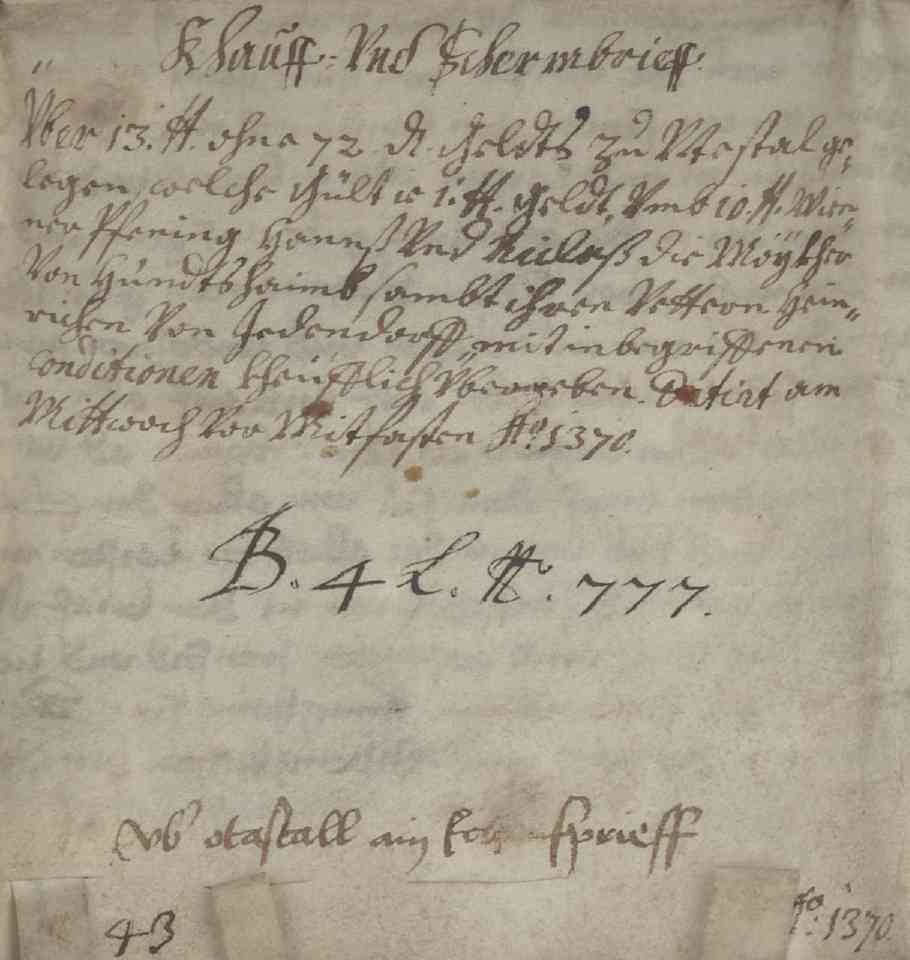 Khauff- Vnd Schermbrieff.
Vber 13. ₰. ohne 72 ₰. Geldts zu Vtestal ge„
legen, welche Gült ie 1. ₰. Geldt, Vmb 10. ₰. Wien„
ner Pfening Hannß Vnd Niclaß die Möyther
Von Hundtshaimb sambt ihren Vettern Hein„
richen Von Jedendorff, mit inbegriffenen
conditionen kheüfflich Vbergeben. Datirt am
Mittwoch Vor Mitfasten Aō. 1370.
B. 4 L. No. 777.
vb otastall ain
43
Aō. 1370